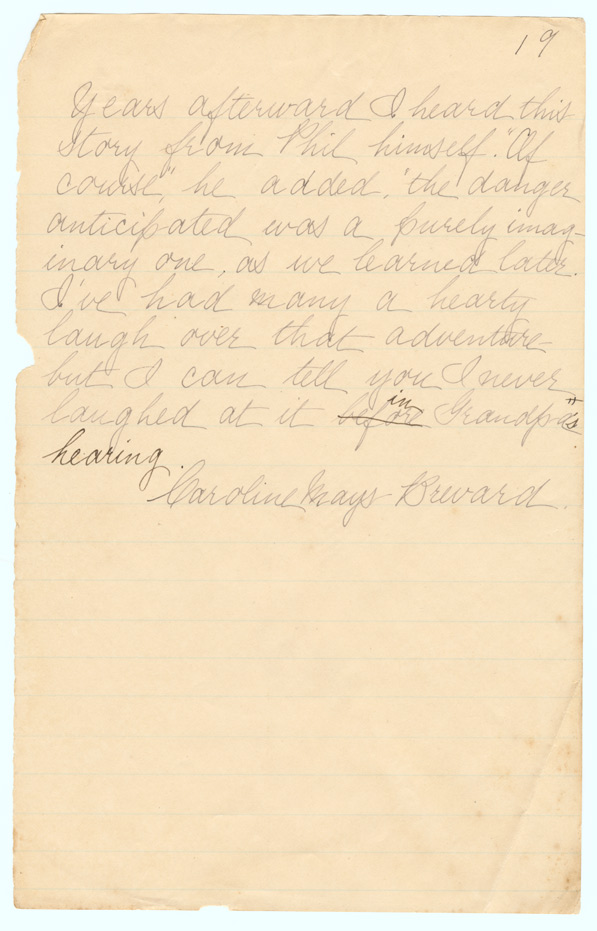 19
Years afterward I heard this
story from Phil himself. "Of
course", he added, 'the danger
anticipated was a purely imag-
inary one, as we learned later.
I've had many a hearty
laugh over that adventure
but I can tell you I never
laughed at it before in Grandpa's"
hearing.
Caroline Mays Brevard.